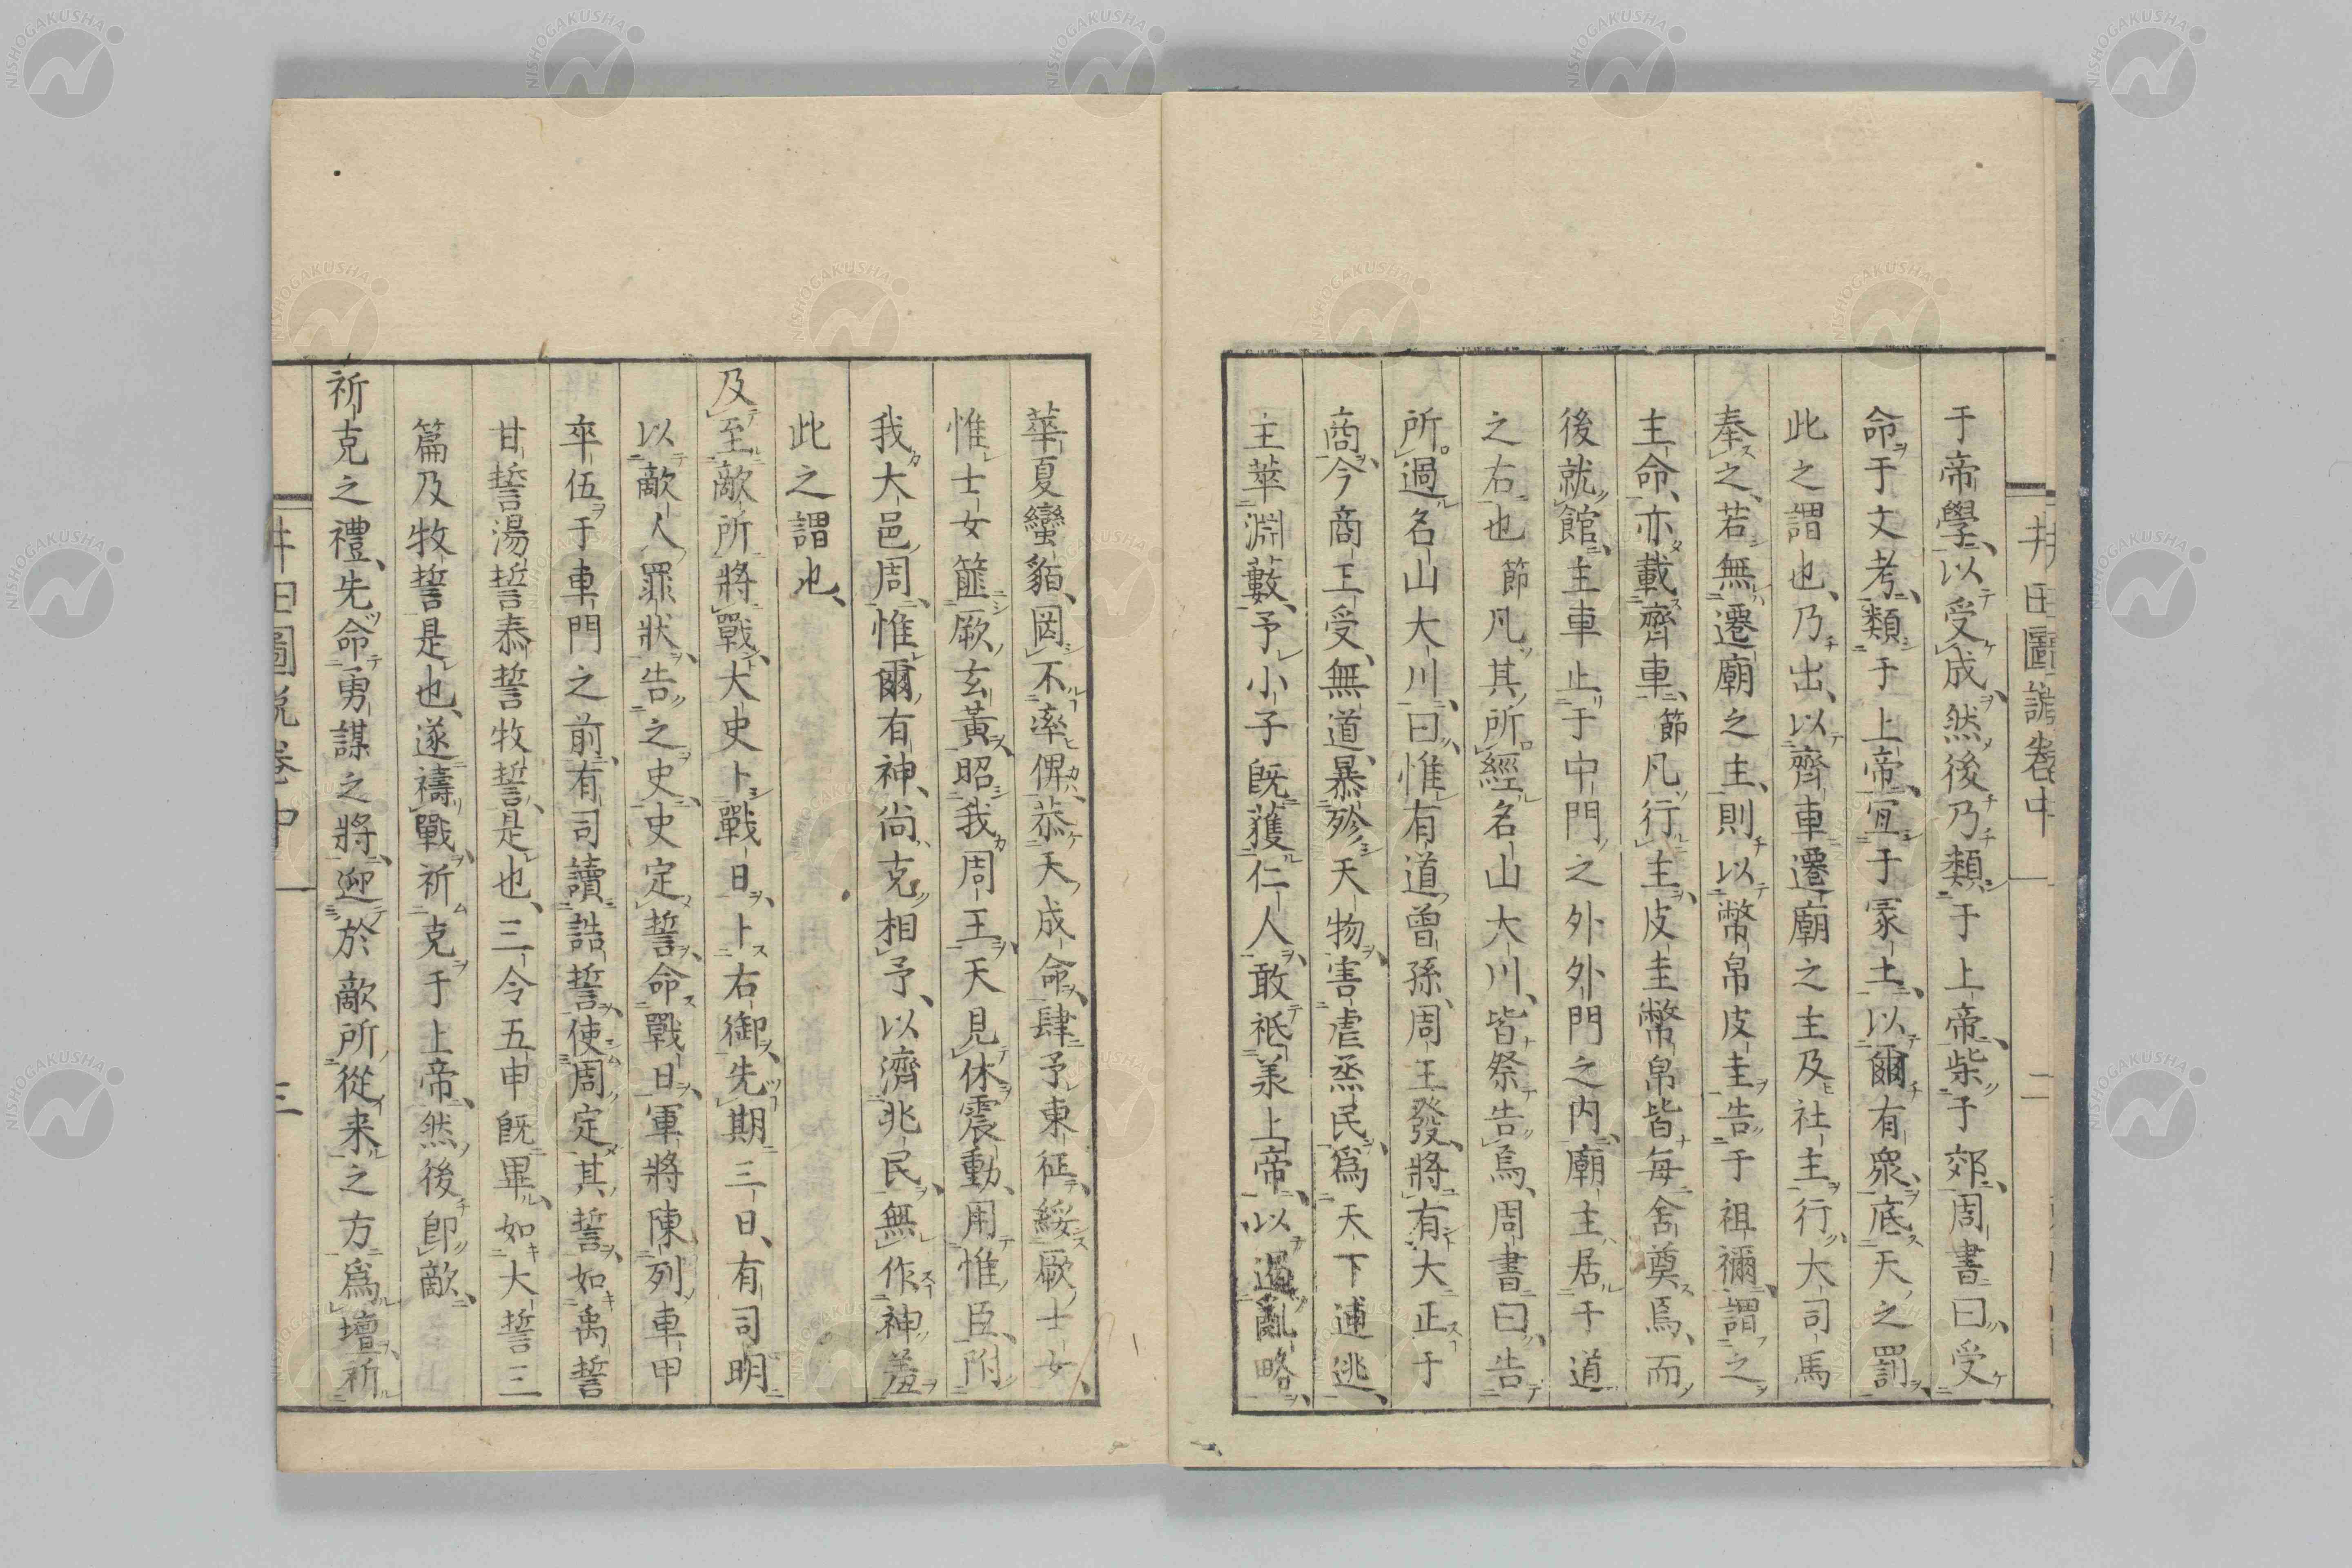 井田圖説卷中
二
于帝學、以受成、然後乃類于上帝、柴于郊、周書曰、受
命于文考、類于上帝、宜于冢土、以爾有衆、底天之罰、
此之謂也、乃出、以齊車遷廟之主及社主行、大司馬
奉之、若無遷廟之主、則以幣帛皮圭告于祖禰、謂之
主命、亦載齊車、節凡行主、皮圭幣帛皆每舍奠焉、而
後就館、主車止于中門之外外門之内、廟主居于道
之右也節凡其所經名山大川、皆祭告焉、周書曰、告
所過名山大川、曰、惟有道曾孫、周王發、將有大正于
商、今商王受、無道、暴殄天物、害虐烝民、爲天下逋逃、
主萃淵藪、予小子旣獲仁人、敢祗羕上帝、以遏亂略、
華夏蠻貊、罔不率俾、恭天成命、肆予東征、綏厥士女、
惟士女篚厥玄黃、昭我周王、天見休震動、用惟臣、附
我大邑周、惟爾有神、尚克相予、以濟兆民、無作神羞
此之謂也、
及至敵所將戰、大史卜戰日、卜右御、先期三日、有司明
以敵人罪狀、告之史、史定誓、命戰日、軍將陳列車甲
卒伍于車門之前、有司讀誥誓、使周定其誓、如禹誓
甘誓湯誓泰誓牧誓、是也、三令五申旣畢、如大誓三
篇及牧誓是也、遂禱戰、祈克于上帝、然後卽敵、
祈克之禮、先命勇謀之將、迎於敵所從来之方爲壇、祈
井田圖説卷中
三
NISHOGAKUSHA